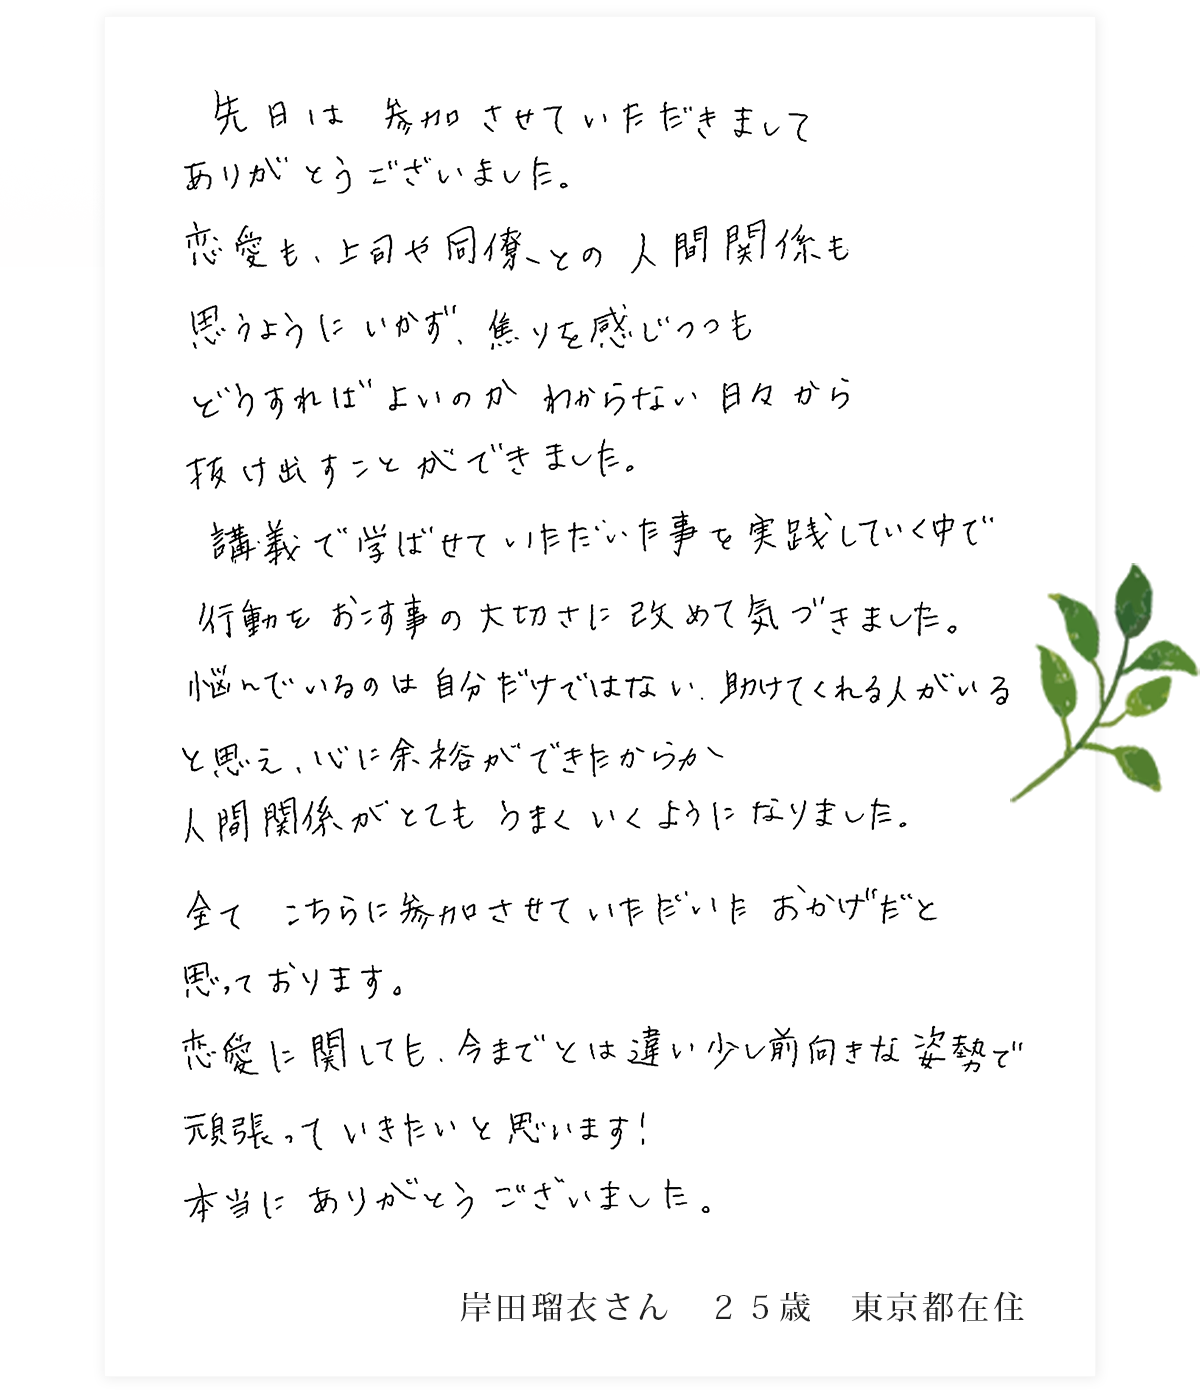 先日は 参加させていただきまして
ありがとうございました。
恋愛も、上司や同僚との人間関係も
思うようにいかず、焦りを感じつつも
どうすればよいのか わからない日々から
抜け出すことができました。
講義で学ばせていただいた事を実践していく中で
行動をおこす事の大切さに改めて気づきました。
悩んでいるのは自分だけではない、助けてくれる人がいる
と思え、心に余裕ができたからか
人間関係がとてもうまくいくようになりました。
全て こちらに参加させていただいた おかげだと
思っております。
恋愛に関しても、今までとは違い少し前向きな姿勢で
頑張っていきたいと思います!
本当に ありがとうございました。
岸田瑠衣さん　２５歳　東京都在住